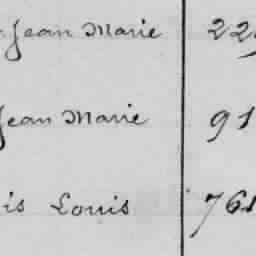 Jean Marie 22
Jean Marie 91
is Louis 761